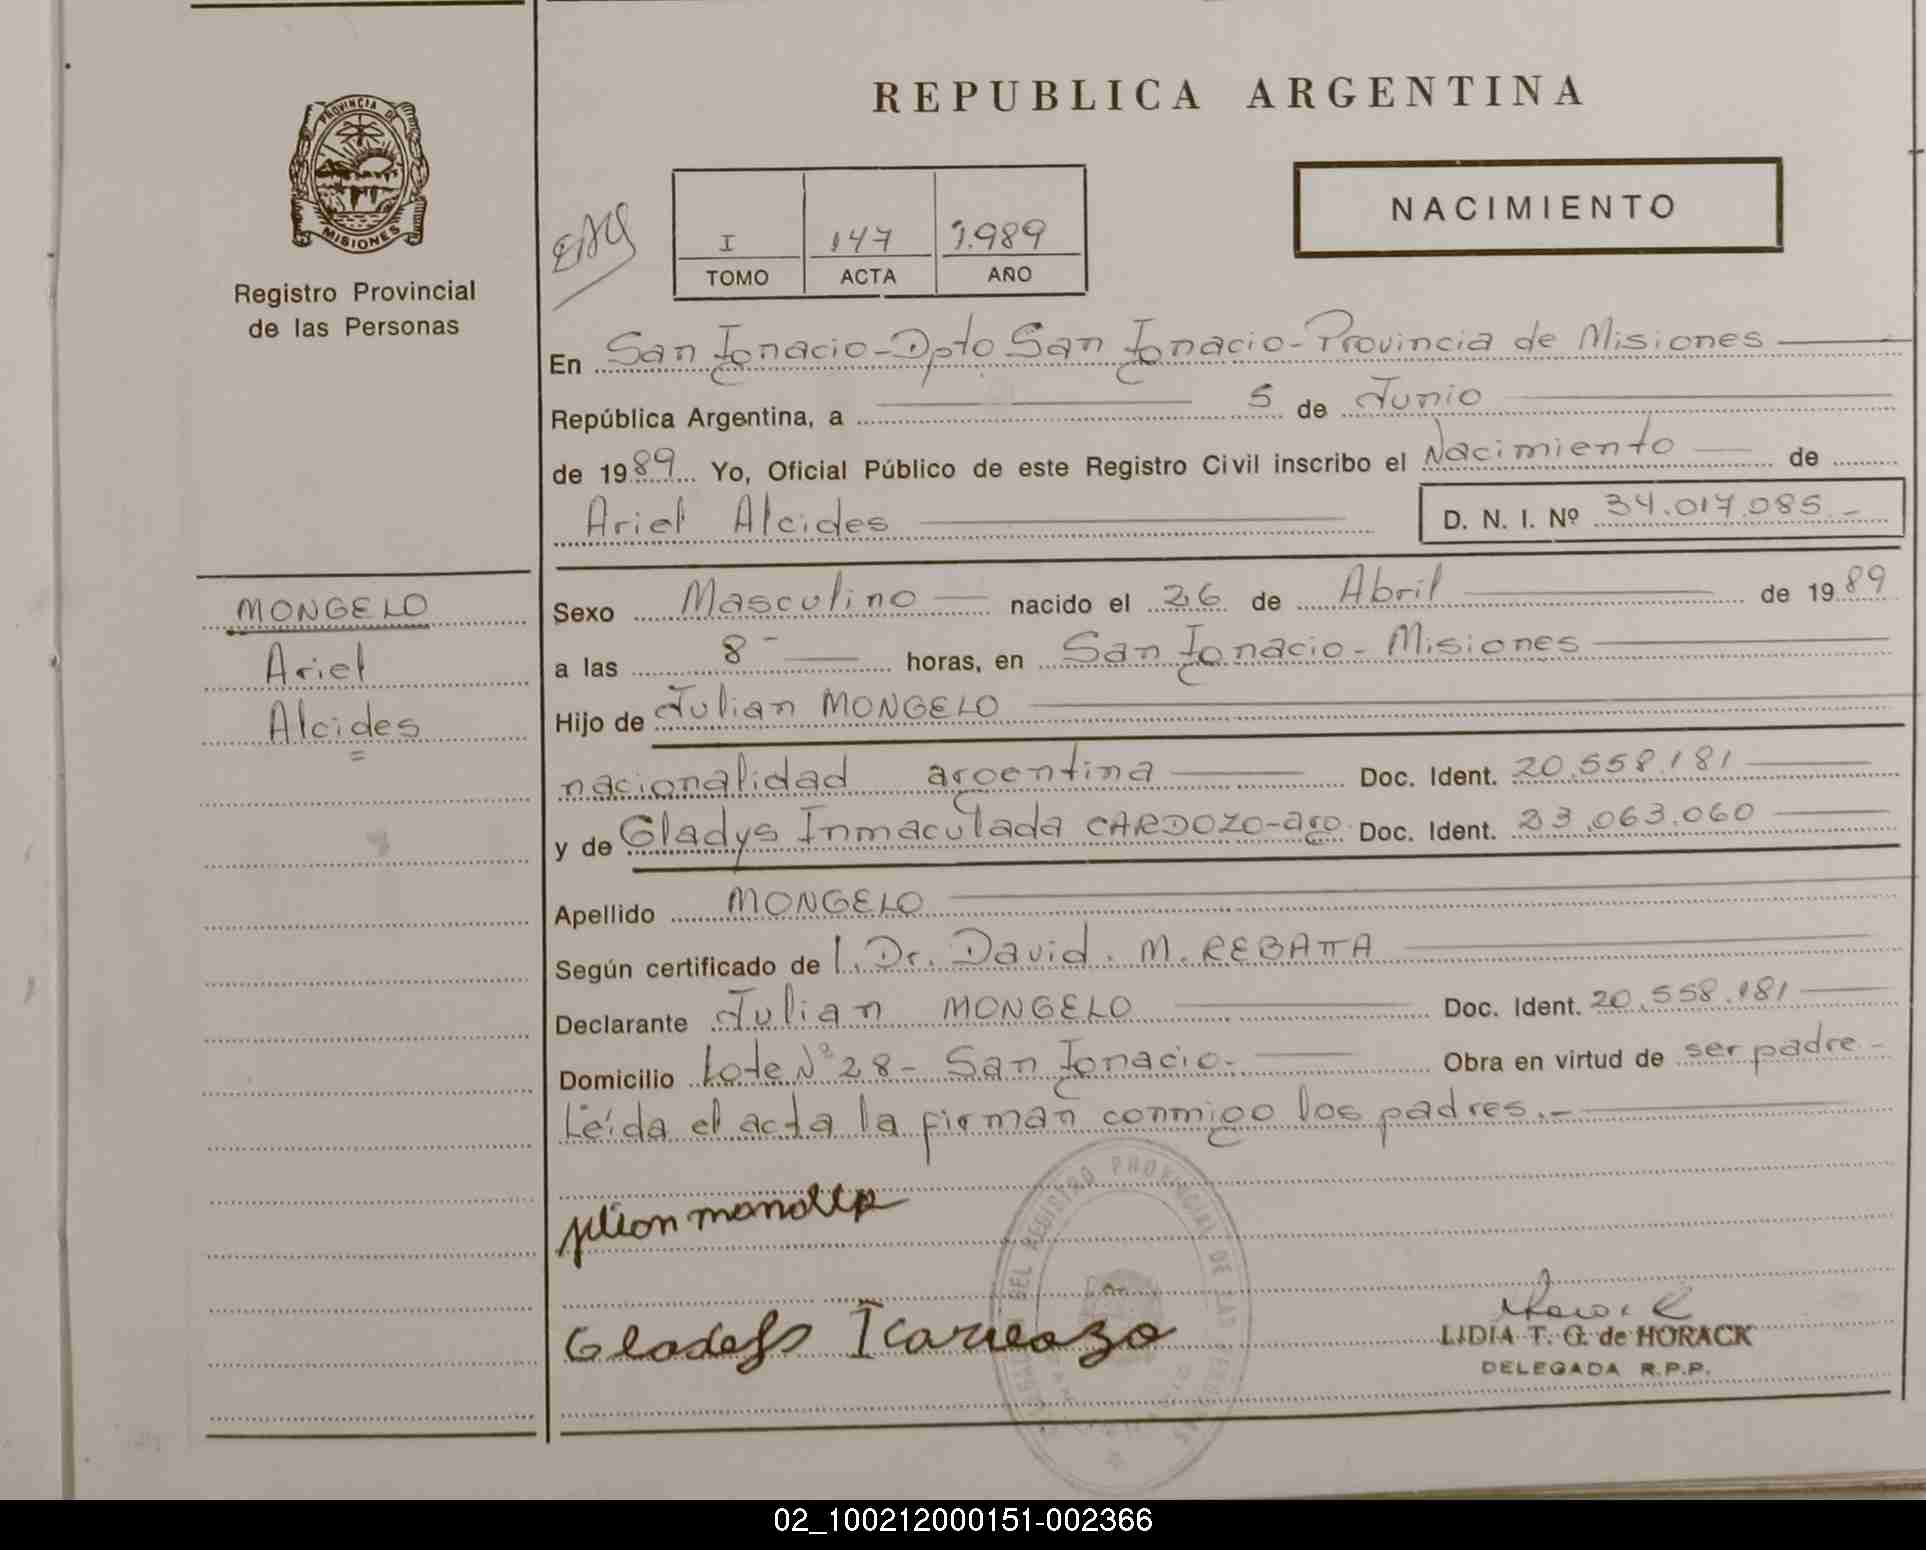 REPUBLICA ARGENTINA
PROVINCIA DE
MISIONES
Registro Provincial
de las Personas
I 147 1.989
TOMO ACTA AÑO
NACIMIENTO
En San Ignacio-Dpto San Ignacio-Provincia de Misiones
República Argentina, a 5 de Junio
de 1989 Yo, Oficial Público de este Registro Civil inscribo el Nacimiento de
Ariel Alcides D. N. I. Nº 34.017.085.-
MONGELO
Ariel
Alcides
Sexo Masculino nacido el 26 de Abril de 1989
a las 8 horas, en San Ignacio-Misiones
Hijo de Julian MONGELO
nacionalidad argentina Doc. Ident. 20.558.181
y de Gladys Inmaculada CARDOZO-arg. Doc. Ident. 23.063.060
Apellido MONGELO
Según certificado de l. Dr. David. M. REBATTA
Declarante Julian MONGELO Doc. Ident. 20.558.181
Domicilio Lote Nº 28- San Ignacio.- Obra en virtud de ser padre-
Leída el acta la firman conmigo los padres.-
DEL REGISTRO PROVINCIAL DE LAS
LIDIA T. G. de HORACK
DELEGADA R.P.P.
02_100212000151-002366